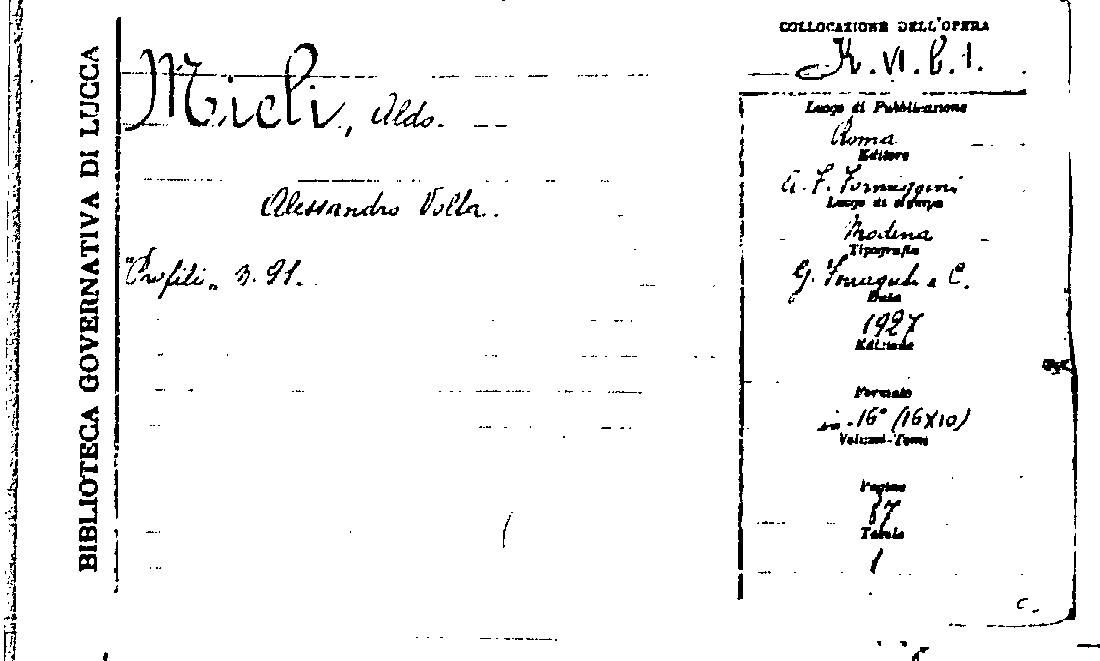 BIBLIOTECA GOVERNATIVA DI LUCCA
Mieli, Aldo.
Alessandro Volta.
"Profili" n. 91.
COLLOCAZIONE DELL'OPERA
K. VI. b. 1.
Luogo di Pubblicazione
Roma
Editore
A. F. Formiggini
Luogo di stampa
Modena
Tipografia
G. Ferraguti e C.
Data
1927
Edizione
Formato
in 16° (16x10)
Volumi-Tomi
Pagine
87
Tavole
1
C.